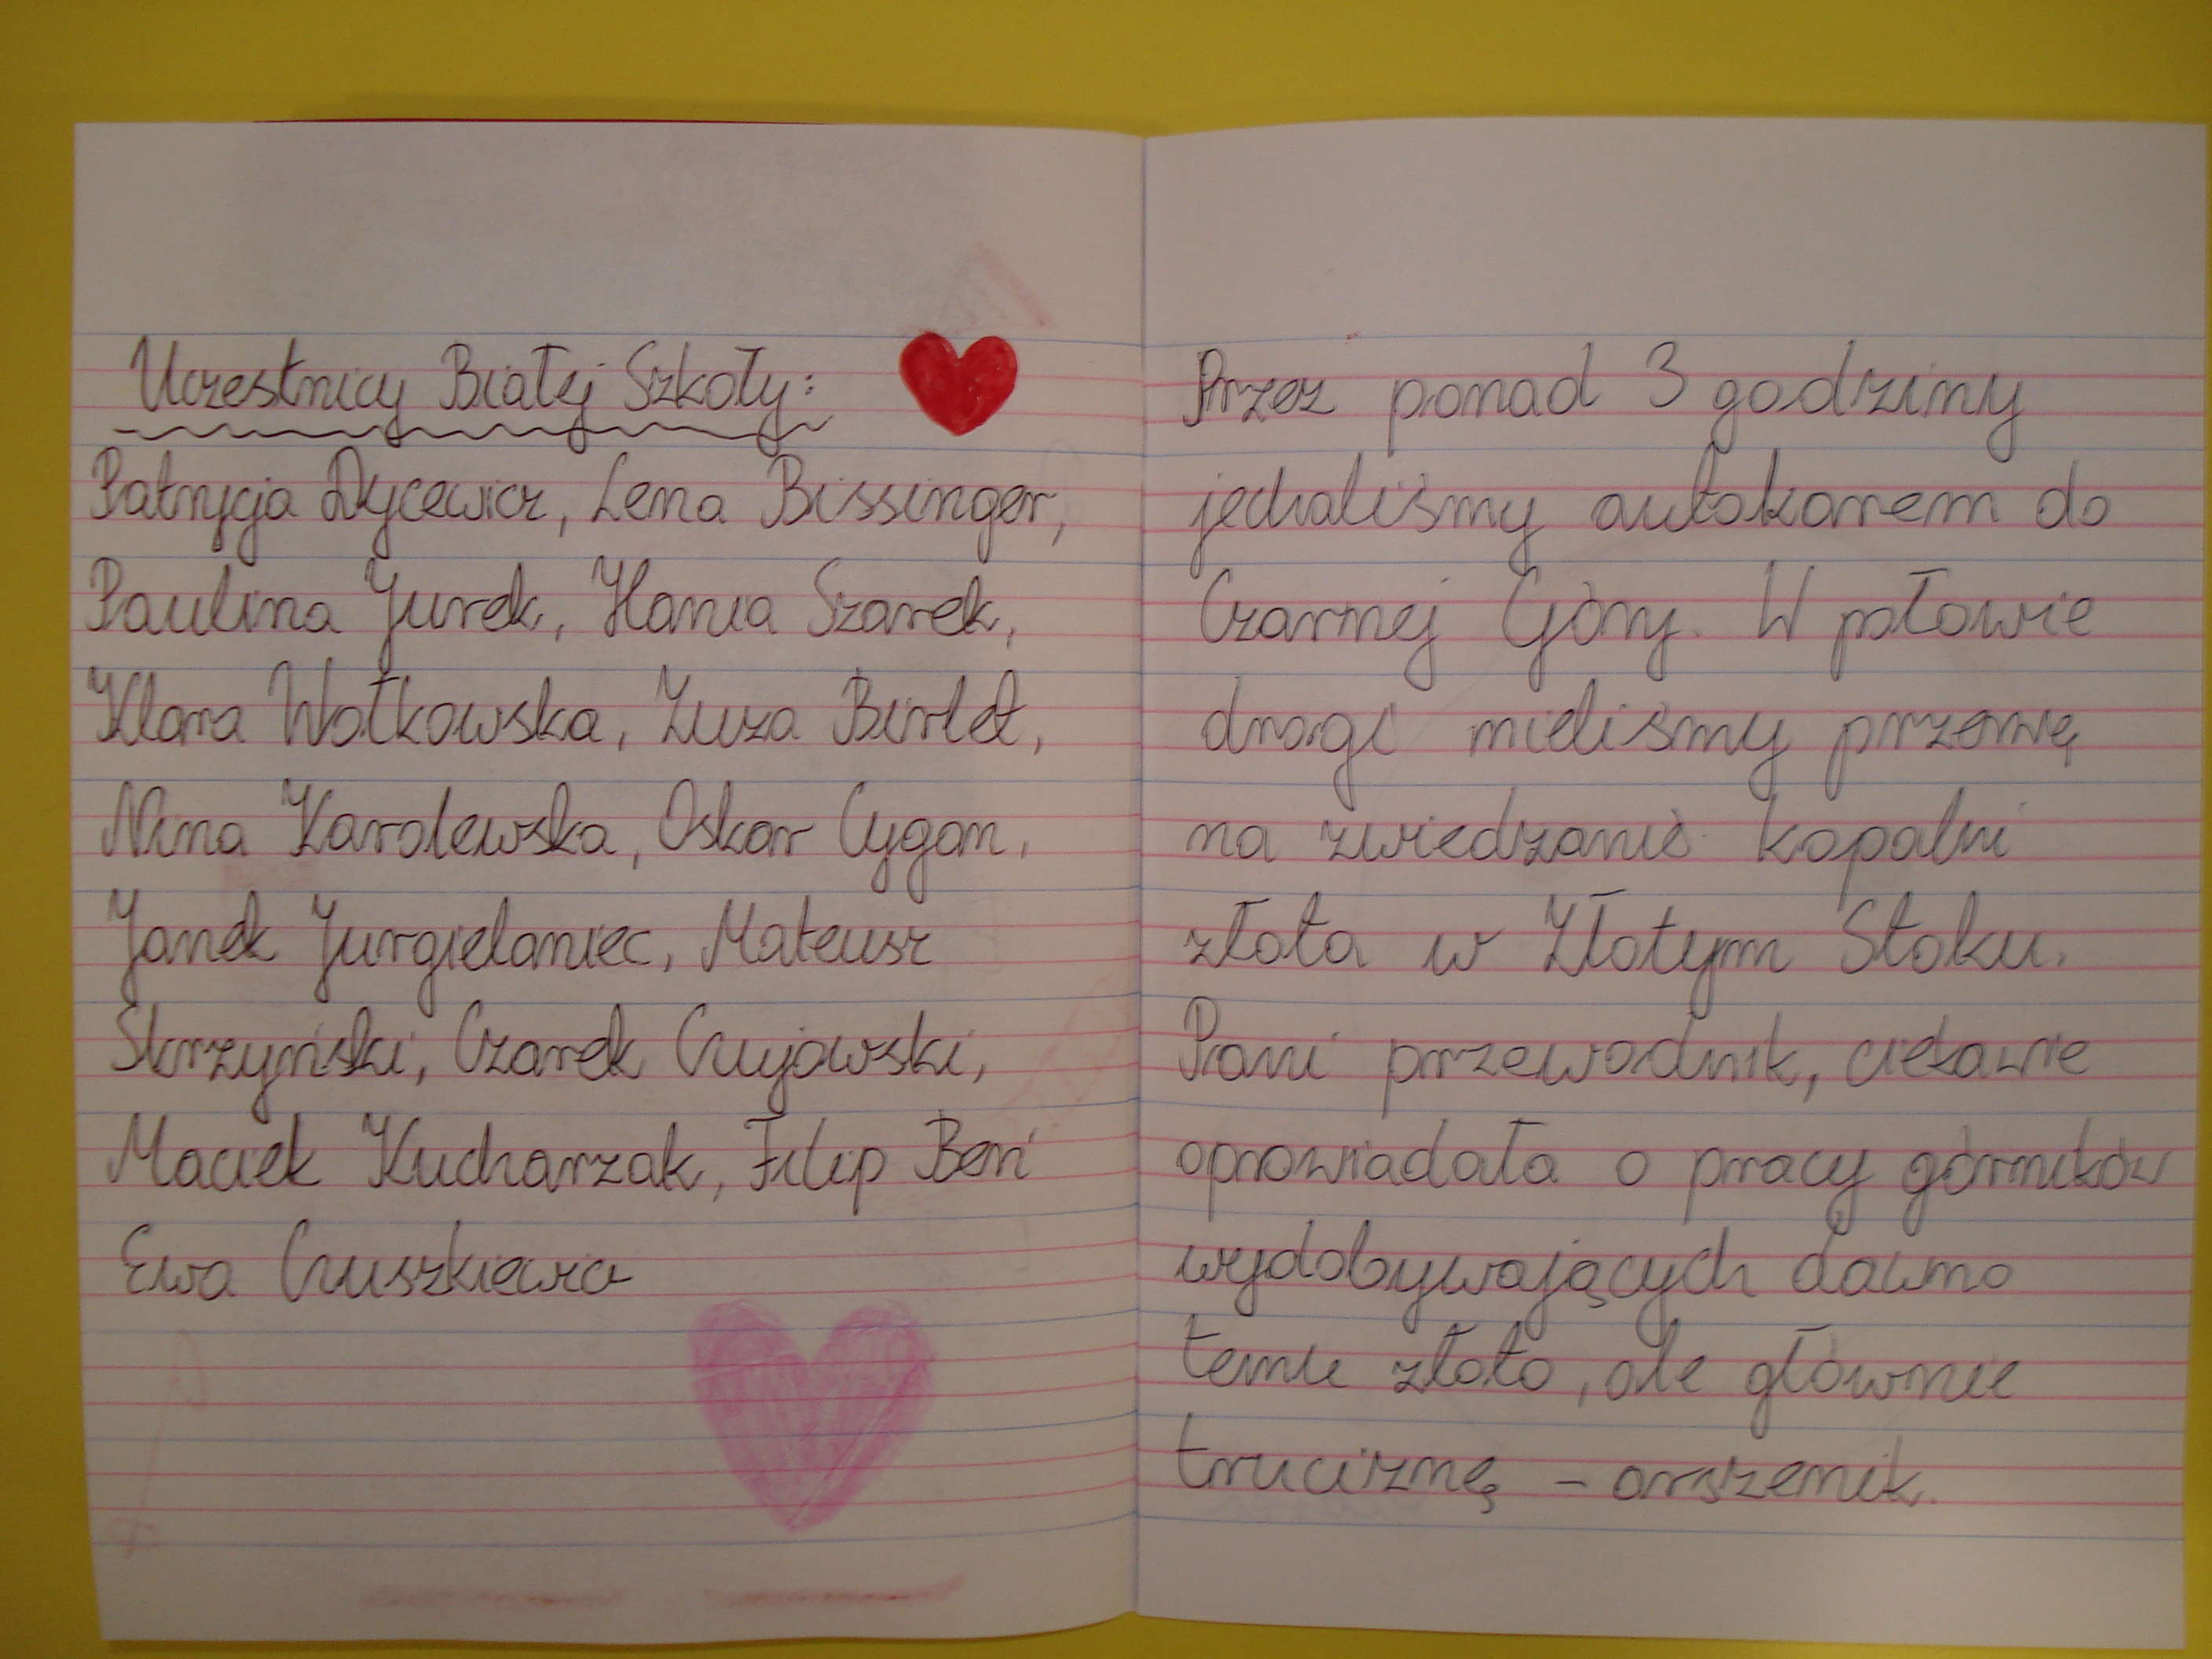 Uczestnicy Białej Szkoły:
Patrycja Dycewicz, Lena Bissinger,
Paulina Jurek, Hania Szarek,
Klara Wołkowska, Zuza Birlet,
Nina Karolewska, Oskar Cygan,
Janek Jurgielaniec, Mateusz
Skrzyński, Czarek Czujowski,
Maciek Kucharzak, Filip Beń
Ewa Czuszkiewicz
Przez ponad 3 godziny
jechaliśmy autokarem do
Czarnej Góry. W połowie
drogi mieliśmy przerwę
na zwiedzanie kopalni
złota w Złotym Stoku.
Pani przewodnik, ciekawie
opowiadała o pracy górników
wydobywających dawno
temu złoto, ale głównie
truciznę - arszenik.